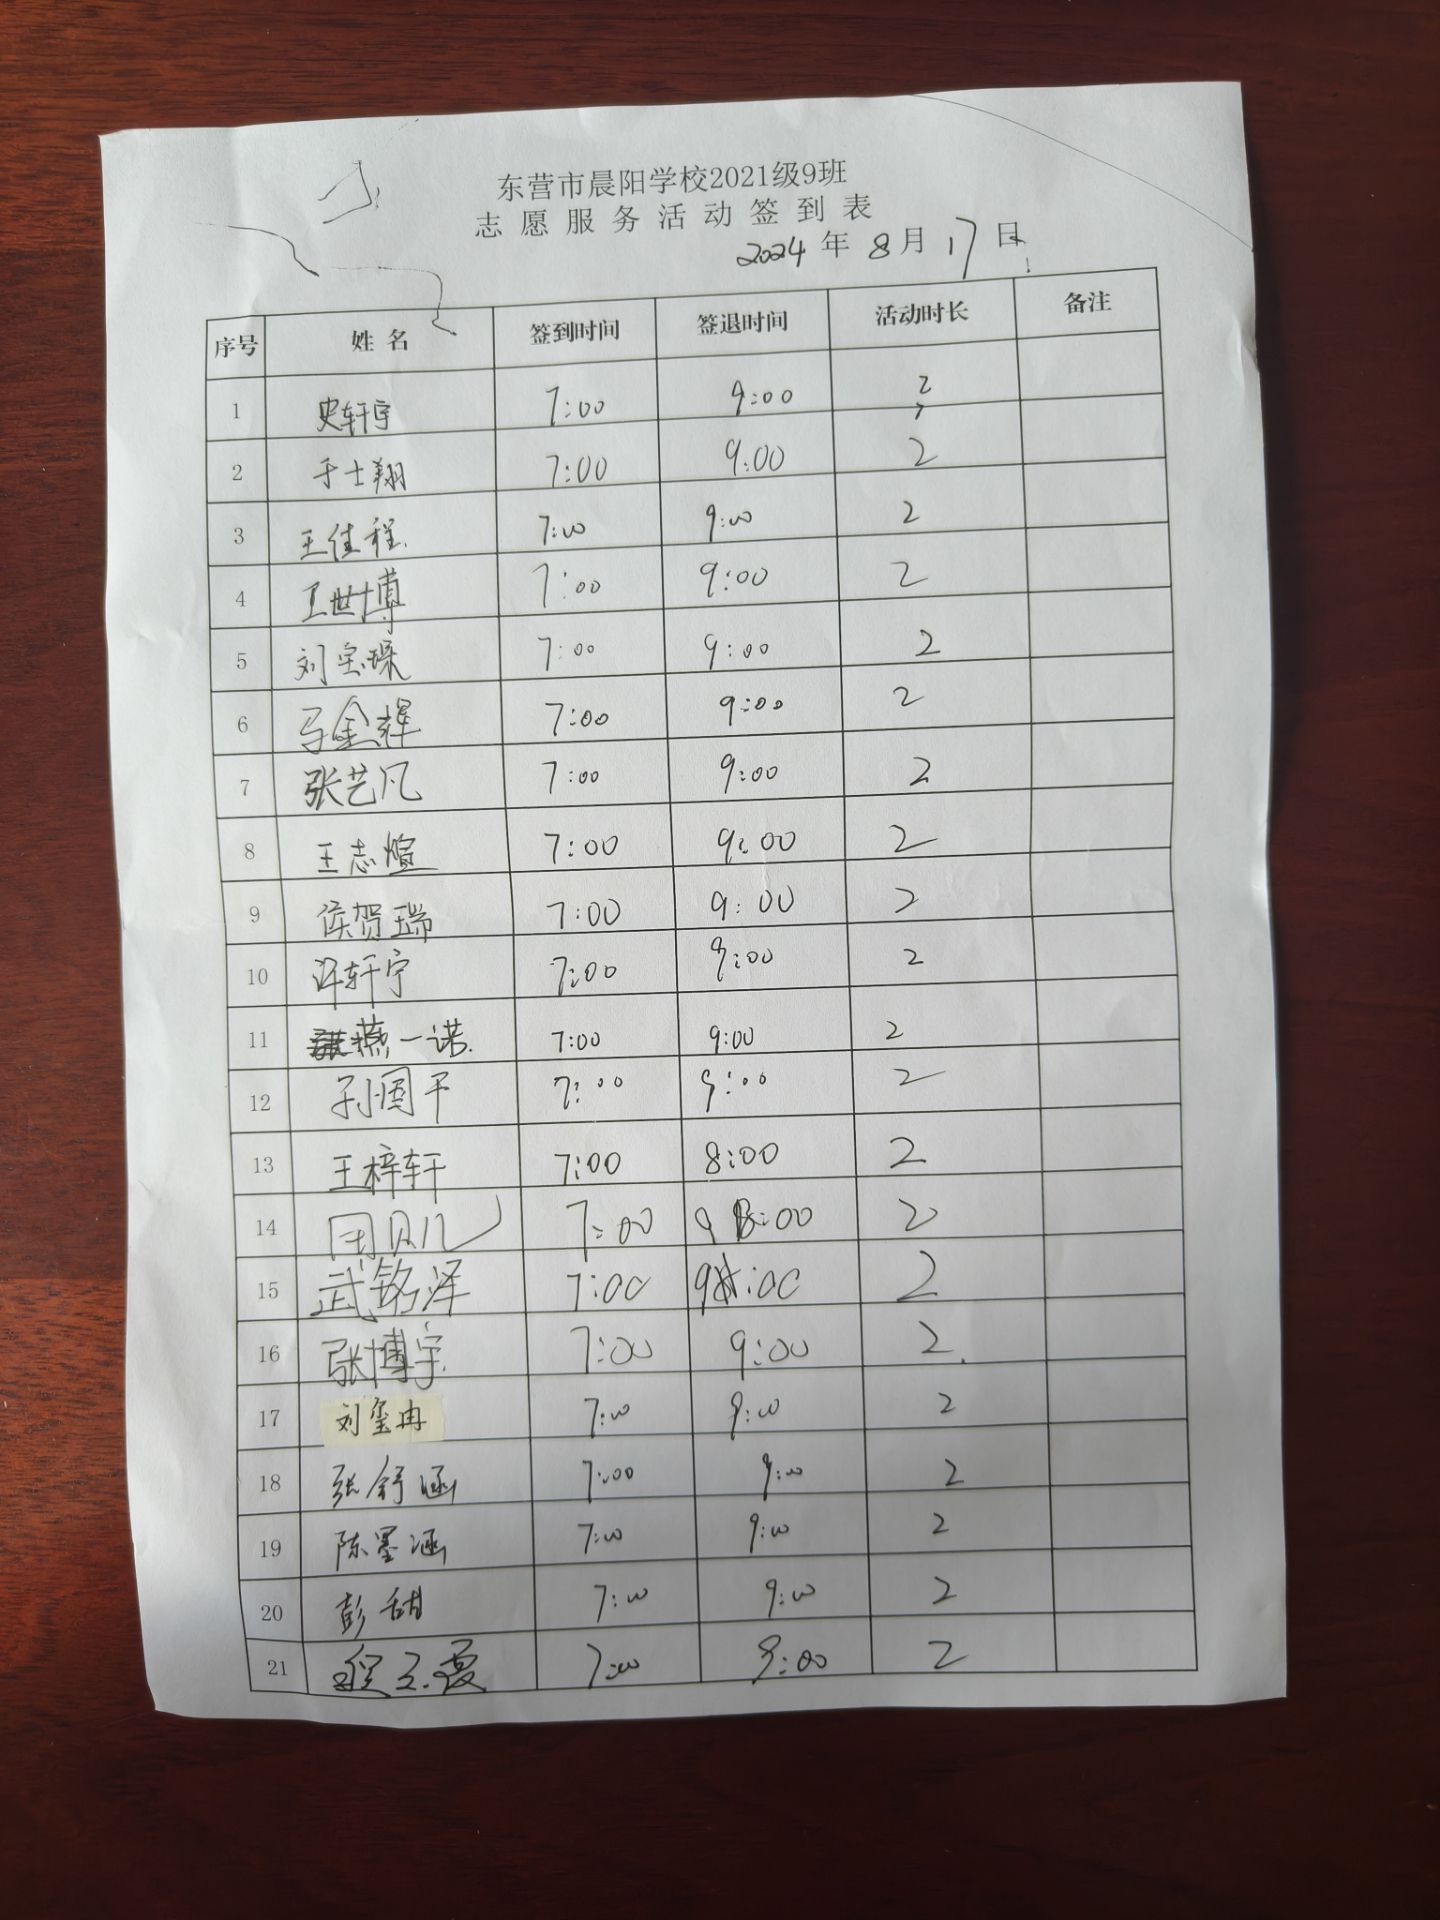 东营市晨阳学校2021级9班
志愿服务活动签到表
2024年8月17日
序号 姓名 签到时间 签退时间 活动时长 备注
1 史轩宇 7:00 9:00 2
2 于士翔 7:00 9:00 2
3 王佳程 7:00 9:00 2
4 王世博 7:00 9:00 2
5 刘宝琛 7:00 9:00 2
6 马金辉 7:00 9:00 2
7 张艺凡 7:00 9:00 2
8 王志煊 7:00 9:00 2
9 侯贺瑞 7:00 9:00 2
10 许轩宁 7:00 9:00 2
11 燕一诺 7:00 9:00 2
12 孙国千 7:00 9:00 2
13 王梓轩 7:00 8:00 2
14 7:00 9:00 2
15 武铭泽 7:00 9:00 2
16 张博宇 7:00 9:00 2
17 刘玺冉 7:00 9:00 2
18 张舒涵 7:00 9:00 2
19 陈墨涵 7:00 9:00 2
20 彭甜 7:00 9:00 2
21 7:00 9:00 2